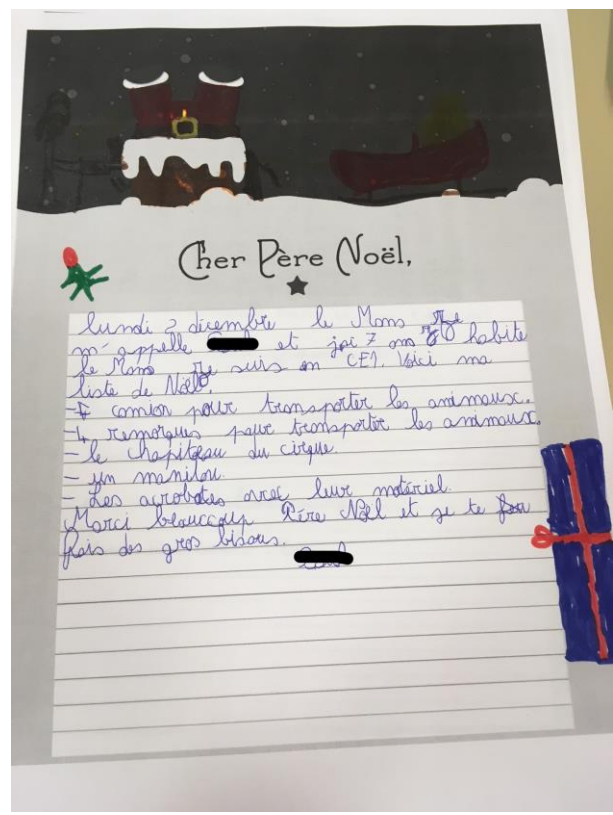 Cher Père Noël,
lundi 2 décembre le Mans Je
m'appelle et jai 7 ans J habite
le Mans Je suis en CE1. Voici ma
liste de Noël.
- camion pour transporter les animaux.
- 4 remorques pour transporter les animaux.
- le chapiteau du cirque.
- un manitou.
- Les acrobates avec leur matériel.
Marci beaucoup Père Noël et je te
fais des gros bisous.